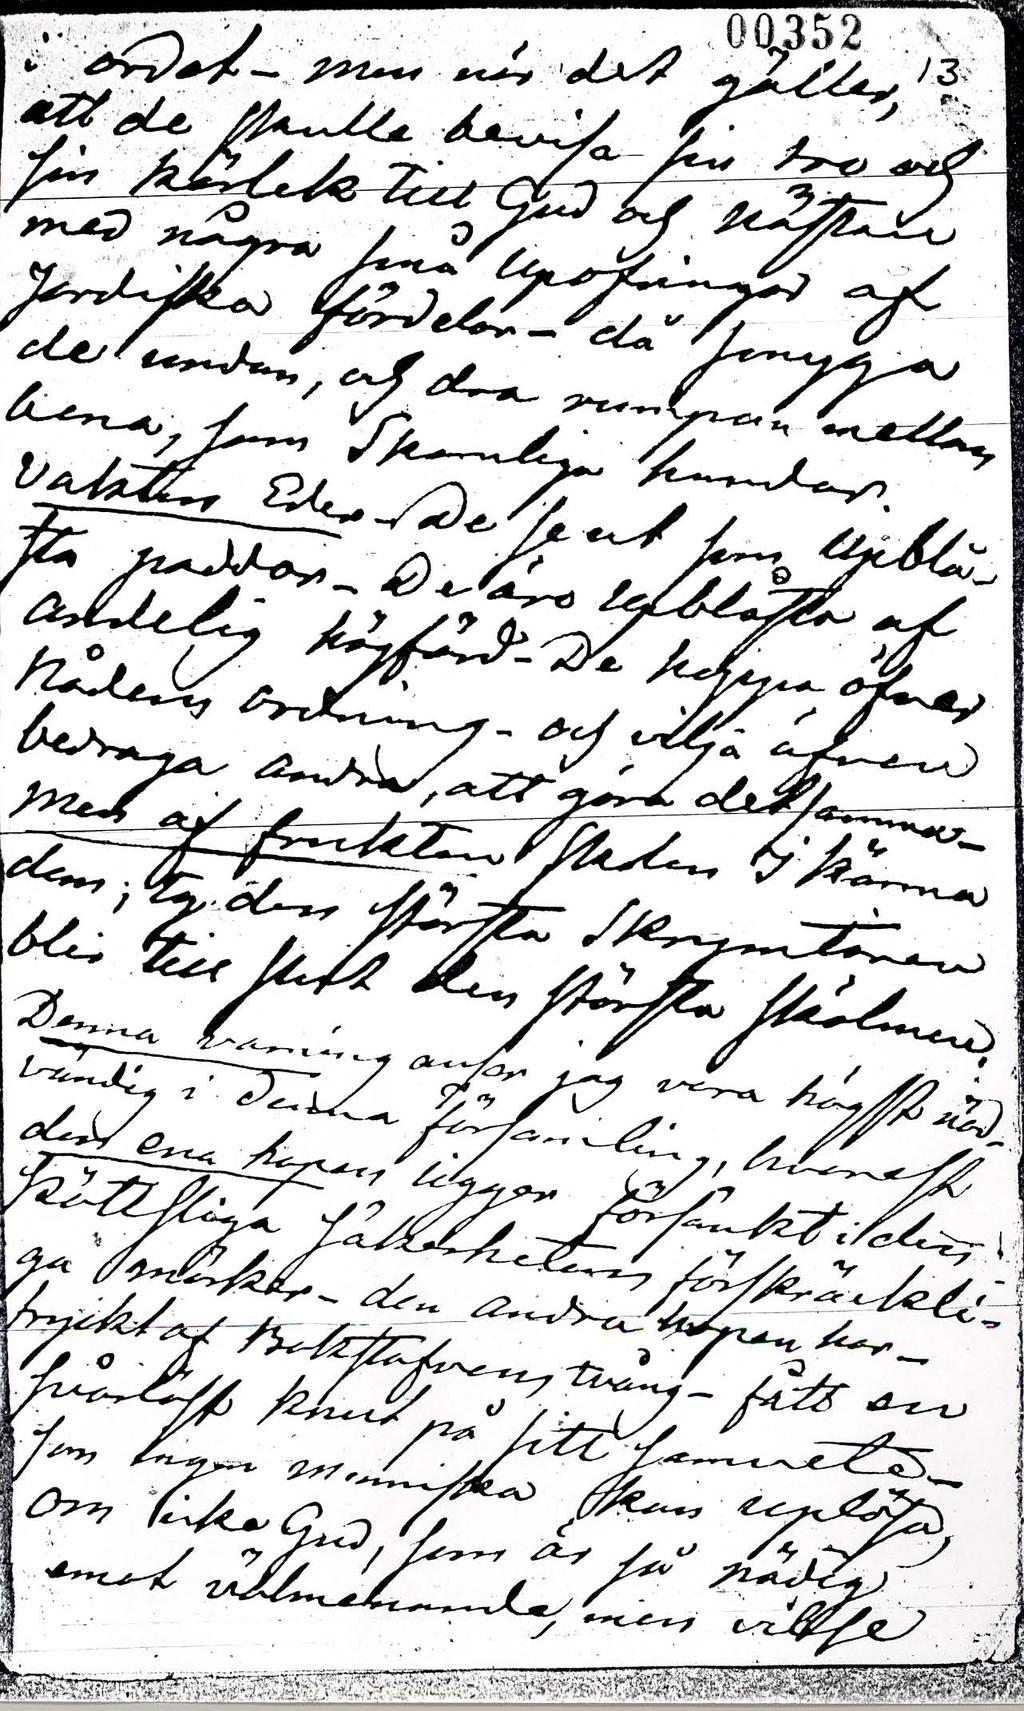 00352
13
i ordet – men när det gäller,
att de skulle bevisa sin tro och
sin kärlek till Gud och nästan
med några små upofringar af
Jordiska fördelar – då smyga
de undan, och dra rumpan mellan
bena, som Skamliga hundar.
Vakten Eder – De se ut som Upblå-
sta paddor – De äro upblåsta af
andelig högfärd – De hoppa öfver
Nådens ordning – och vilja äfven
bedraga andra, att göra detsamma –
Men af frukten skolen I känna
dem; ty den största Skrymtaren
blir till slut den största skälmen.
Denna varning anser jag vara högst nöd-
vändig i denna församling, hvarest
den ena hopen ligger försänkt i den
köttsliga säkerhetens förskräckli-
ga mörker – den andra hopen har –
tryckt af Bokstafvens tvång – fått en
svårlöst knut på sitt samvete –
som ingen menniska kan uplösa,
om icke Gud, som är så nådig
emot välmenande, men vilse